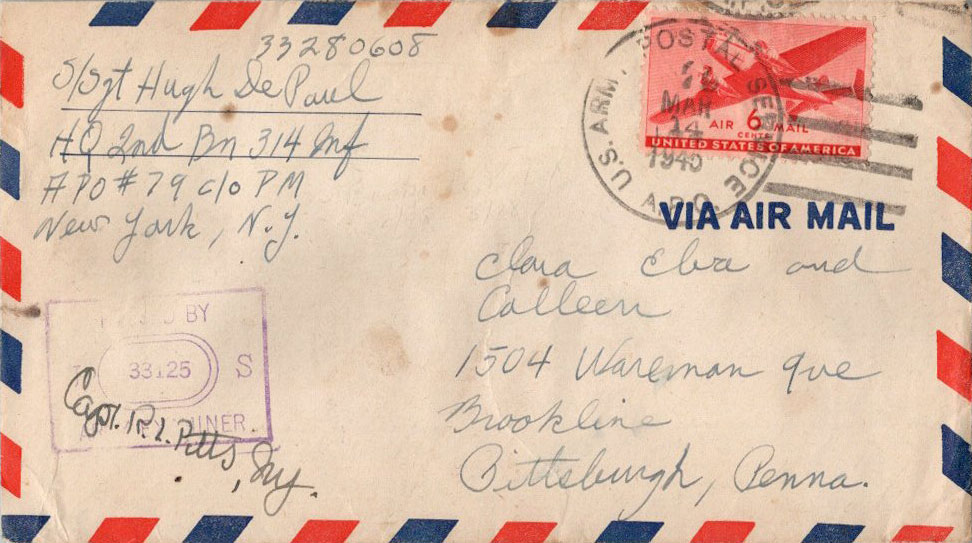 33280608
S/Sgt Hugh De Paul
HQ 2nd Bn 314 Inf
APO #79 c/o PM
New York, N.Y.
U.S. ARMY POSTAL SERVICE
MAR
14
1945
A.P.O.
AIR 6 MAIL
CENTS
UNITED STATES OF AMERICA
VIA AIR MAIL
Clara Elva and
Colleen
1504 Wareman Ave
Brookline
Pittsburgh, Penna.
BY
33125 S
Capt. R.L. Pitts, Inf.